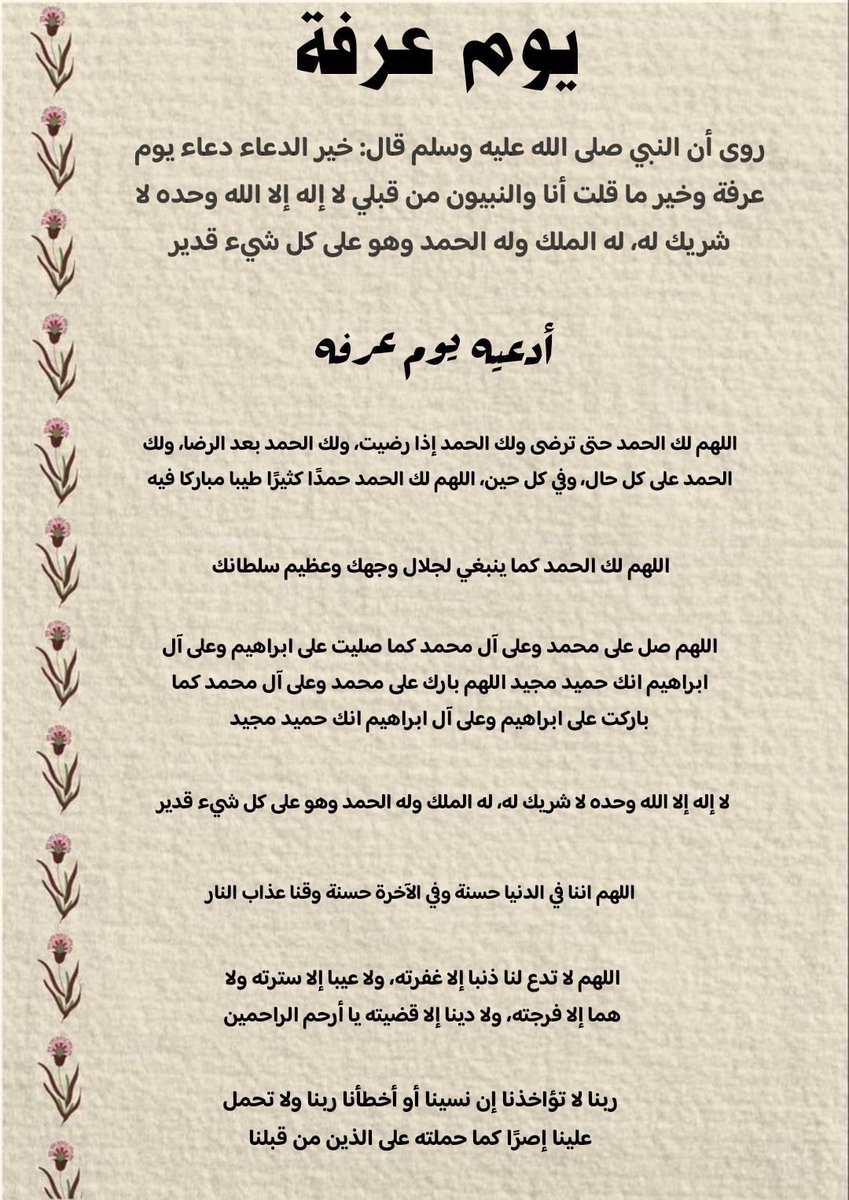 يوم عرفة
روى أن النبي صلى الله عليه وسلم قال: خير الدعاء دعاء يوم
عرفة وخير ما قلت أنا والنبيون من قبلي لا إله إلا الله وحده لا
شريك له، له الملك وله الحمد وهو على كل شيء قدير
أدعيه يوم عرفه
اللهم لك الحمد حتى ترضى ولك الحمد إذا رضيت، ولك الحمد بعد الرضا، ولك
الحمد على كل حال، وفي كل حين، اللهم لك الحمد حمدًا كثيرًا طيبا مباركا فيه
اللهم لك الحمد كما ينبغي لجلال وجهك وعظيم سلطانك
اللهم صل على محمد وعلى آل محمد كما صليت على ابراهيم وعلى آل
ابراهيم انك حميد مجيد اللهم بارك على محمد وعلى آل محمد كما
باركت على ابراهيم وعلى آل ابراهيم انك حميد مجيد
لا إله إلا الله وحده لا شريك له، له الملك وله الحمد وهو على كل شيء قدير
اللهم اننا في الدنيا حسنة وفي الآخرة حسنة وقنا عذاب النار
اللهم لا تدع لنا ذنبا إلا غفرته، ولا عيبا إلا سترته ولا
هما إلا فرجته، ولا دينا إلا قضيته يا أرحم الراحمين
ربنا لا تؤاخذنا إن نسينا أو أخطأنا ربنا ولا تحمل
علينا إصرًا كما حملته على الذين من قبلنا